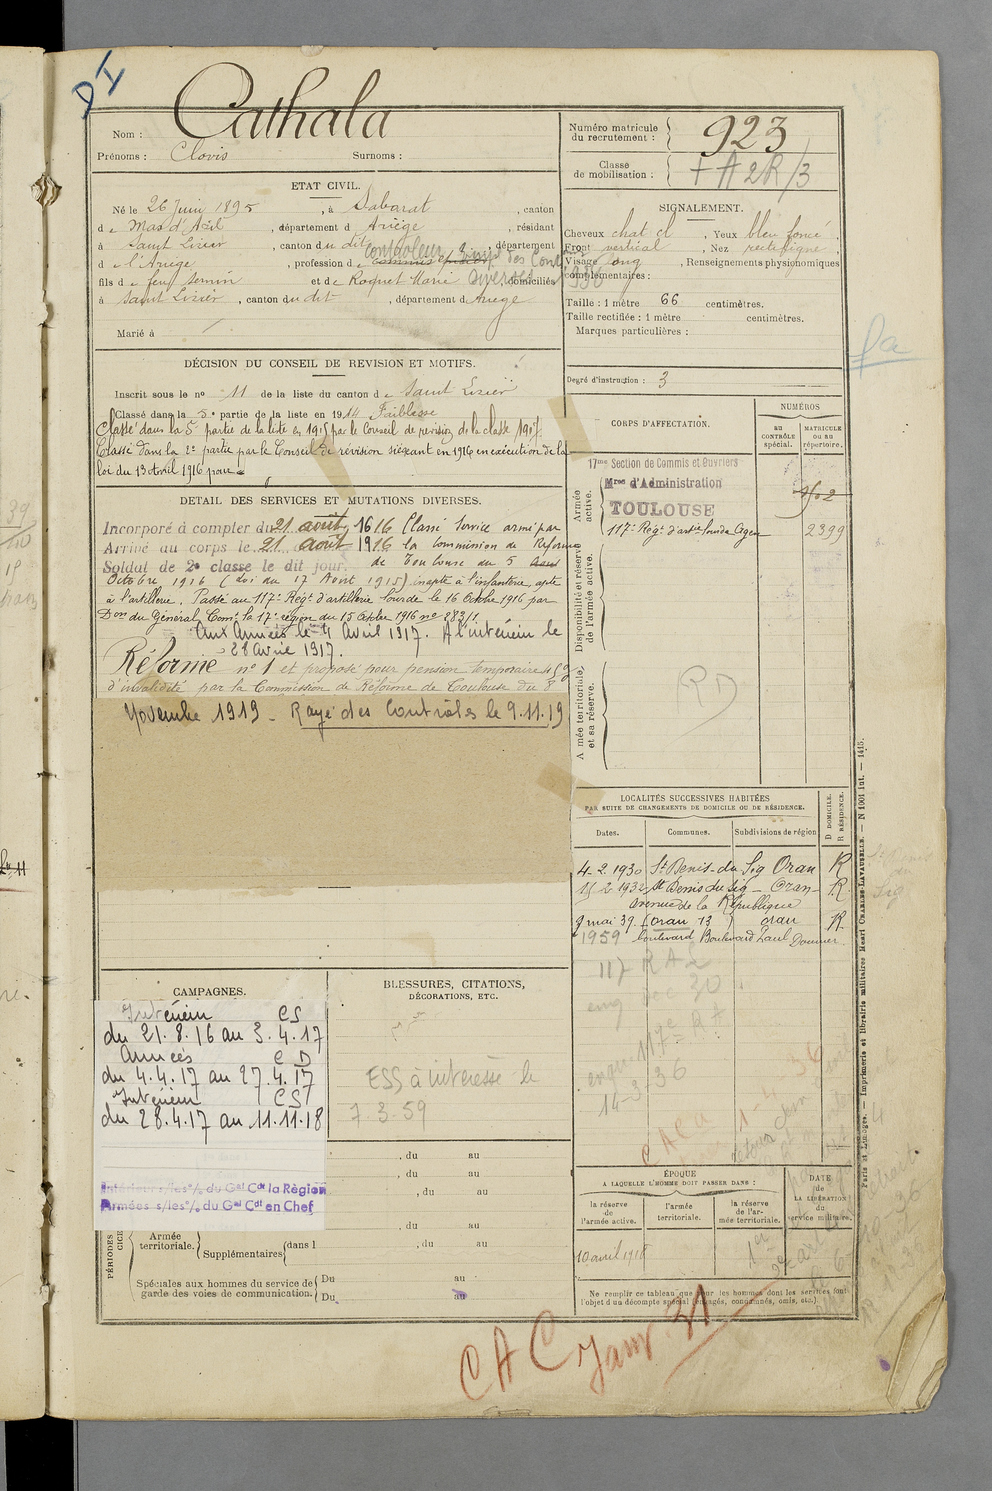 D I
Nom : Cathala
Prénoms : Clovis Surnoms :
Numéro matricule du recrutement : 923
Classe de mobilisation : + A 2 R/3
ETAT CIVIL.
Né le 26 Juin 1895, à Sabarat, canton
de Mas d'Azil, département d Ariège, résidant
à Saint Lizier, canton du dit, département
de l'Ariège, profession de commis
contrôleur ppal des Cont
Diverses 1936
fils de feu Sernin et de Roquet Marie, domiciliés
à Saint Lizier, canton du dit, département d Ariège
Marié à
SIGNALEMENT.
Cheveux chat cl, Yeux bleu foncé,
Front vertical, Nez rectiligne
Visage long, Renseignements physionomiques
complémentaires :
Taille : 1 mètre 66 centimètres.
Taille rectifiée : 1 mètre centimètres.
Marques particulières :
Degré d'instruction : 3
DÉCISION DU CONSEIL DE REVISION ET MOTIFS.
Inscrit sous le no 11 de la liste du canton de Saint Lizier
Classé dans la 5e partie de la liste en 1914 Faiblesse
Classé dans la 5e partie de la liste en 1915 par le Conseil de revision de la classe 1917.
Classé dans la 2e partie par le Conseil de révision siégeant en 1916 en exécution de la
loi du 13 avril 1916 pour
DETAIL DES SERVICES ET MUTATIONS DIVERSES.
Incorporé à compter du 21 août 1616 Classé service armé par
Arrivé au corps le 21 août 1916 la Commission de Réforme
Soldat de 2e classe le dit jour. de Toulouse du 5
Octobre 1916 (Loi du 17 Août 1915) inapte à l'infanterie, apte
à l'artillerie. Passé au 117e Régt d'artillerie lourde le 16 Octobre 1916 par
Don du Général Comt la 17e région du 15 Octobre 1916 no 2831/1
Aux Armées le 4 Avril 1917. A l'intérieur le
28 Avril 1917.
Réformé no 1 et proposé pour pension temporaire
d'invalidité par la Commission de Réforme de Toulouse du 8
Novembre 1919 - Rayé des Contrôles le 9.11.19
CORPS D'AFFECTATION.
NUMÉROS
au CONTRÔLE spécial.
MATRICULE ou au répertoire.
Armée active.
17me Section de Commis et Ouvriers
Mres d'Administration
TOULOUSE
117e Régt d'artie lourde Agen 2399
Disponibilité et réserve de l'armée active.
Armée territoriale et sa réserve.
R D
LOCALITÉS SUCCESSIVES HABITÉES
PAR SUITE DE CHANGEMENTS DE DOMICILE OU DE RÉSIDENCE.
Dates. Communes. Subdivisions de région D DOMICILE. R RÉSIDENCE.
4-2.1930 St Denis-du-Sig Oran R
15.2 1932 St Denis du Sig - Oran - R.
avenue de la République
9 mai 39. Oran 13 oran R
1959 boulevard Boulevard Paul Doumer
117 R A L
117e R A
14-3-36
CAMPAGNES.
Intérieur CS
du 21.8.16 au 3.4.17
Armées C D
du 4.4.17 au 27.4.17
Intérieur CS
du 28.4.17 au 11.11.18
Intérieur s/les o/ du Gal Cdt la Région
Armées s/les o/ du Gal Cdt en Chef
BLESSURES, CITATIONS,
DÉCORATIONS, ETC.
ESS à intéressé le
7-3-59
, du au
, du au
, du au
, du au
Armée territoriale. Supplémentaires dans l , du au
Spéciales aux hommes du service de garde des voies de communication. Du au
Du au
ÉPOQUE
A LAQUELLE L'HOMME DOIT PASSER DANS :
la réserve de l'armée active.
l'armée territoriale.
la réserve de l'armée territoriale.
DATE de LA LIBÉRATION du service militaire.
10 avril 1918
Ne remplir ce tableau que pour les hommes dont les services font
l'objet d'un décompte spécial (engagés, condamnés, omis, etc.)
C A C Janv. 31
Paris et Limoges. — Imprimerie et librairie militaires Henri CHARLES-LAVAUZELLE. — N 1001 int. — 1415.